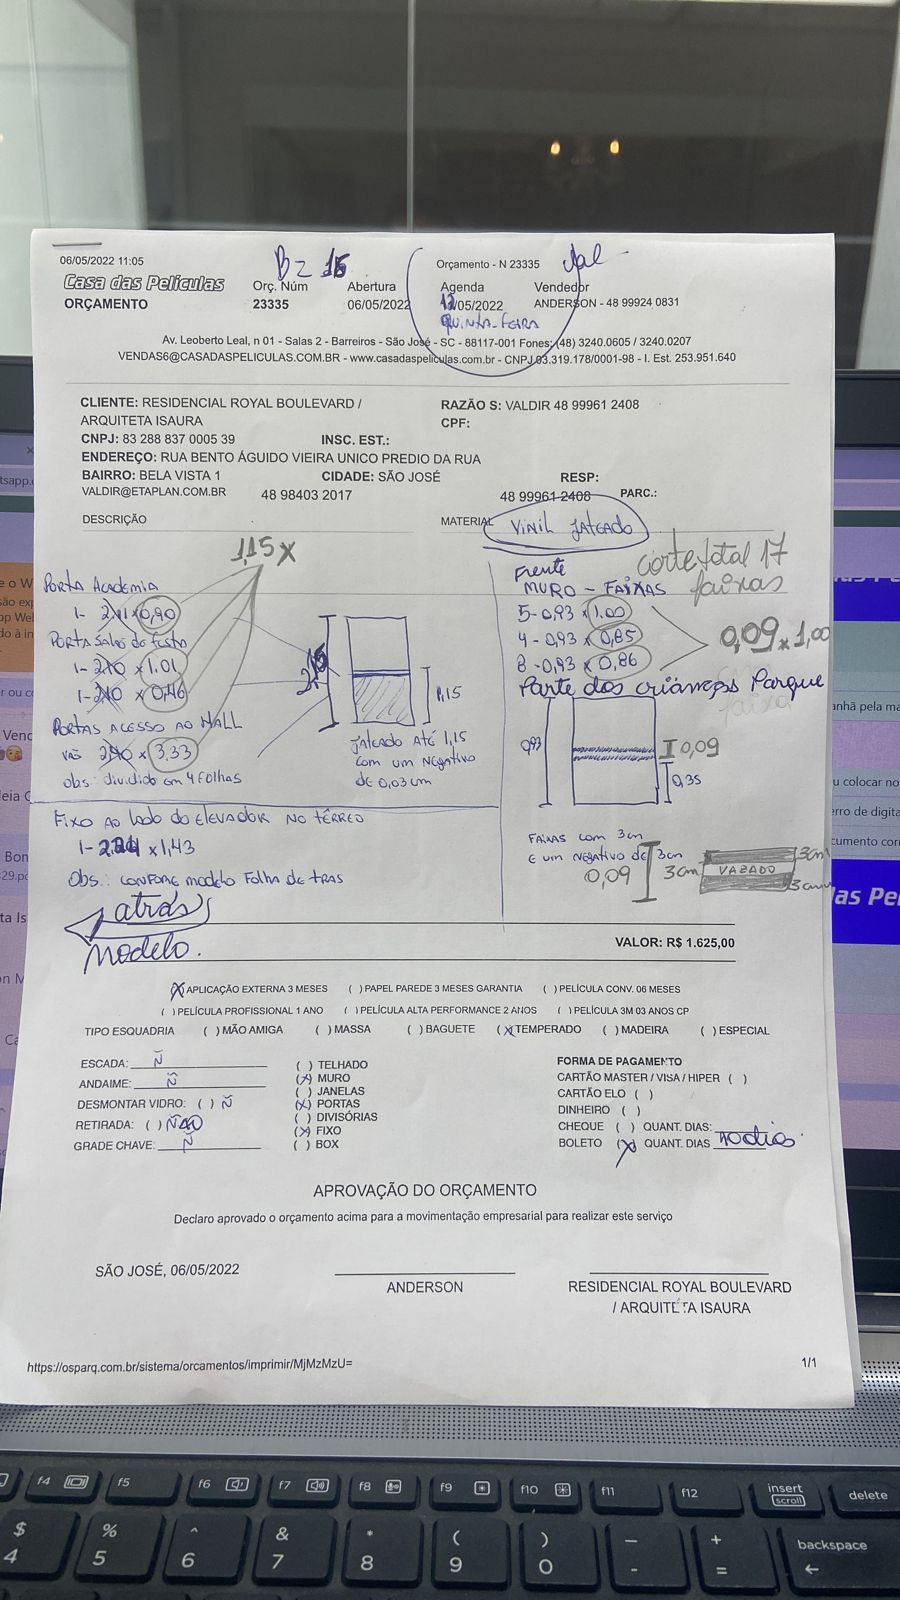 06/05/2022 11:05
Orçamento - N 23335
Casa das Películas
ORÇAMENTO
Orç. Núm
23335
Abertura
06/05/2022
Agenda
12/05/2022
QUINTA-FEIRA
Vendedor
ANDERSON - 48 99924 0831
Av. Leoberto Leal, n 01 - Salas 2 - Barreiros - São José - SC - 88117-001 Fones: (48) 3240.0605 / 3240.0207
VENDAS6@CASADASPELICULAS.COM.BR - www.casadaspeliculas.com.br - CNPJ 03.319.178/0001-98 - I. Est. 253.951.640
CLIENTE: RESIDENCIAL ROYAL BOULEVARD /
ARQUITETA ISAURA
RAZÃO S: VALDIR 48 99961 2408
CPF:
CNPJ: 83 288 837 0005 39
INSC. EST.:
ENDEREÇO: RUA BENTO ÁGUIDO VIEIRA UNICO PREDIO DA RUA
BAIRRO: BELA VISTA 1
CIDADE: SÃO JOSÉ
RESP:
VALDIR@ETAPLAN.COM.BR
48 98403 2017
48 99961 2408
PARC.:
DESCRIÇÃO
MATERIAL
VINIL JATEADO
1,15 X
PORTA ACADEMIA
1- 2,11 x 0,90
PORTA Salão de festa
1- 2,10 x 1,01
1- 2,10 x 0,46
PORTAS ACESSO AO HALL
vão 2,10 x 3,33
obs: dividido em 4 folhas
1,15
JATEADO ATÉ 1,15
com um negativo
de 0,03cm
Frente
MURO - FAIXAS
corte total 17
faixas
5-0,93 x 1,00
4-0,93 x 0,85
8-0,93 x 0,86
0,09 x 1,00
Parte dos crianças Parque
faixa
0,93
0,09
0,35
FAIXAS com 3cm
E um negativo de 3cm
0,09
3cm
VAZADO
3cm
3cm
FIXO AO lado do ELEVADOR NO TÉRREO
x 1,43
Obs.: CONFORME modelo Folha de TRÁS
atrás
modelo.
VALOR: R$ 1.625,00
(X) APLICAÇÃO EXTERNA 3 MESES ( ) PAPEL PAREDE 3 MESES GARANTIA ( ) PELÍCULA CONV. 06 MESES
( ) PELÍCULA PROFISSIONAL 1 ANO ( ) PELÍCULA ALTA PERFORMANCE 2 ANOS ( ) PELÍCULA 3M 03 ANOS CP
TIPO ESQUADRIA ( ) MÃO AMIGA ( ) MASSA ( ) BAGUETE (X) TEMPERADO ( ) MADEIRA ( ) ESPECIAL
ESCADA: Ñ
ANDAIME: Ñ
DESMONTAR VIDRO: ( ) Ñ
RETIRADA: ( ) NÃO
GRADE CHAVE: Ñ
( ) TELHADO
(X) MURO
( ) JANELAS
(X) PORTAS
( ) DIVISÓRIAS
(X) FIXO
( ) BOX
FORMA DE PAGAMENTO
CARTÃO MASTER / VISA / HIPER ( )
CARTÃO ELO ( )
DINHEIRO ( )
CHEQUE ( ) QUANT. DIAS:
BOLETO (X) QUANT. DIAS 10 dias
APROVAÇÃO DO ORÇAMENTO
Declaro aprovado o orçamento acima para a movimentação empresarial para realizar este serviço
SÃO JOSÉ, 06/05/2022
ANDERSON
RESIDENCIAL ROYAL BOULEVARD
/ ARQUITETA ISAURA
https://osparq.com.br/sistema/orcamentos/imprimir/MjMzMzU=
1/1
f4 f5 f6 f7 f8 f9 f10 f11 f12 insert delete
scroll
$ % ^ & * ( ) _ + backspace
4 5 6 7 8 9 0 - =